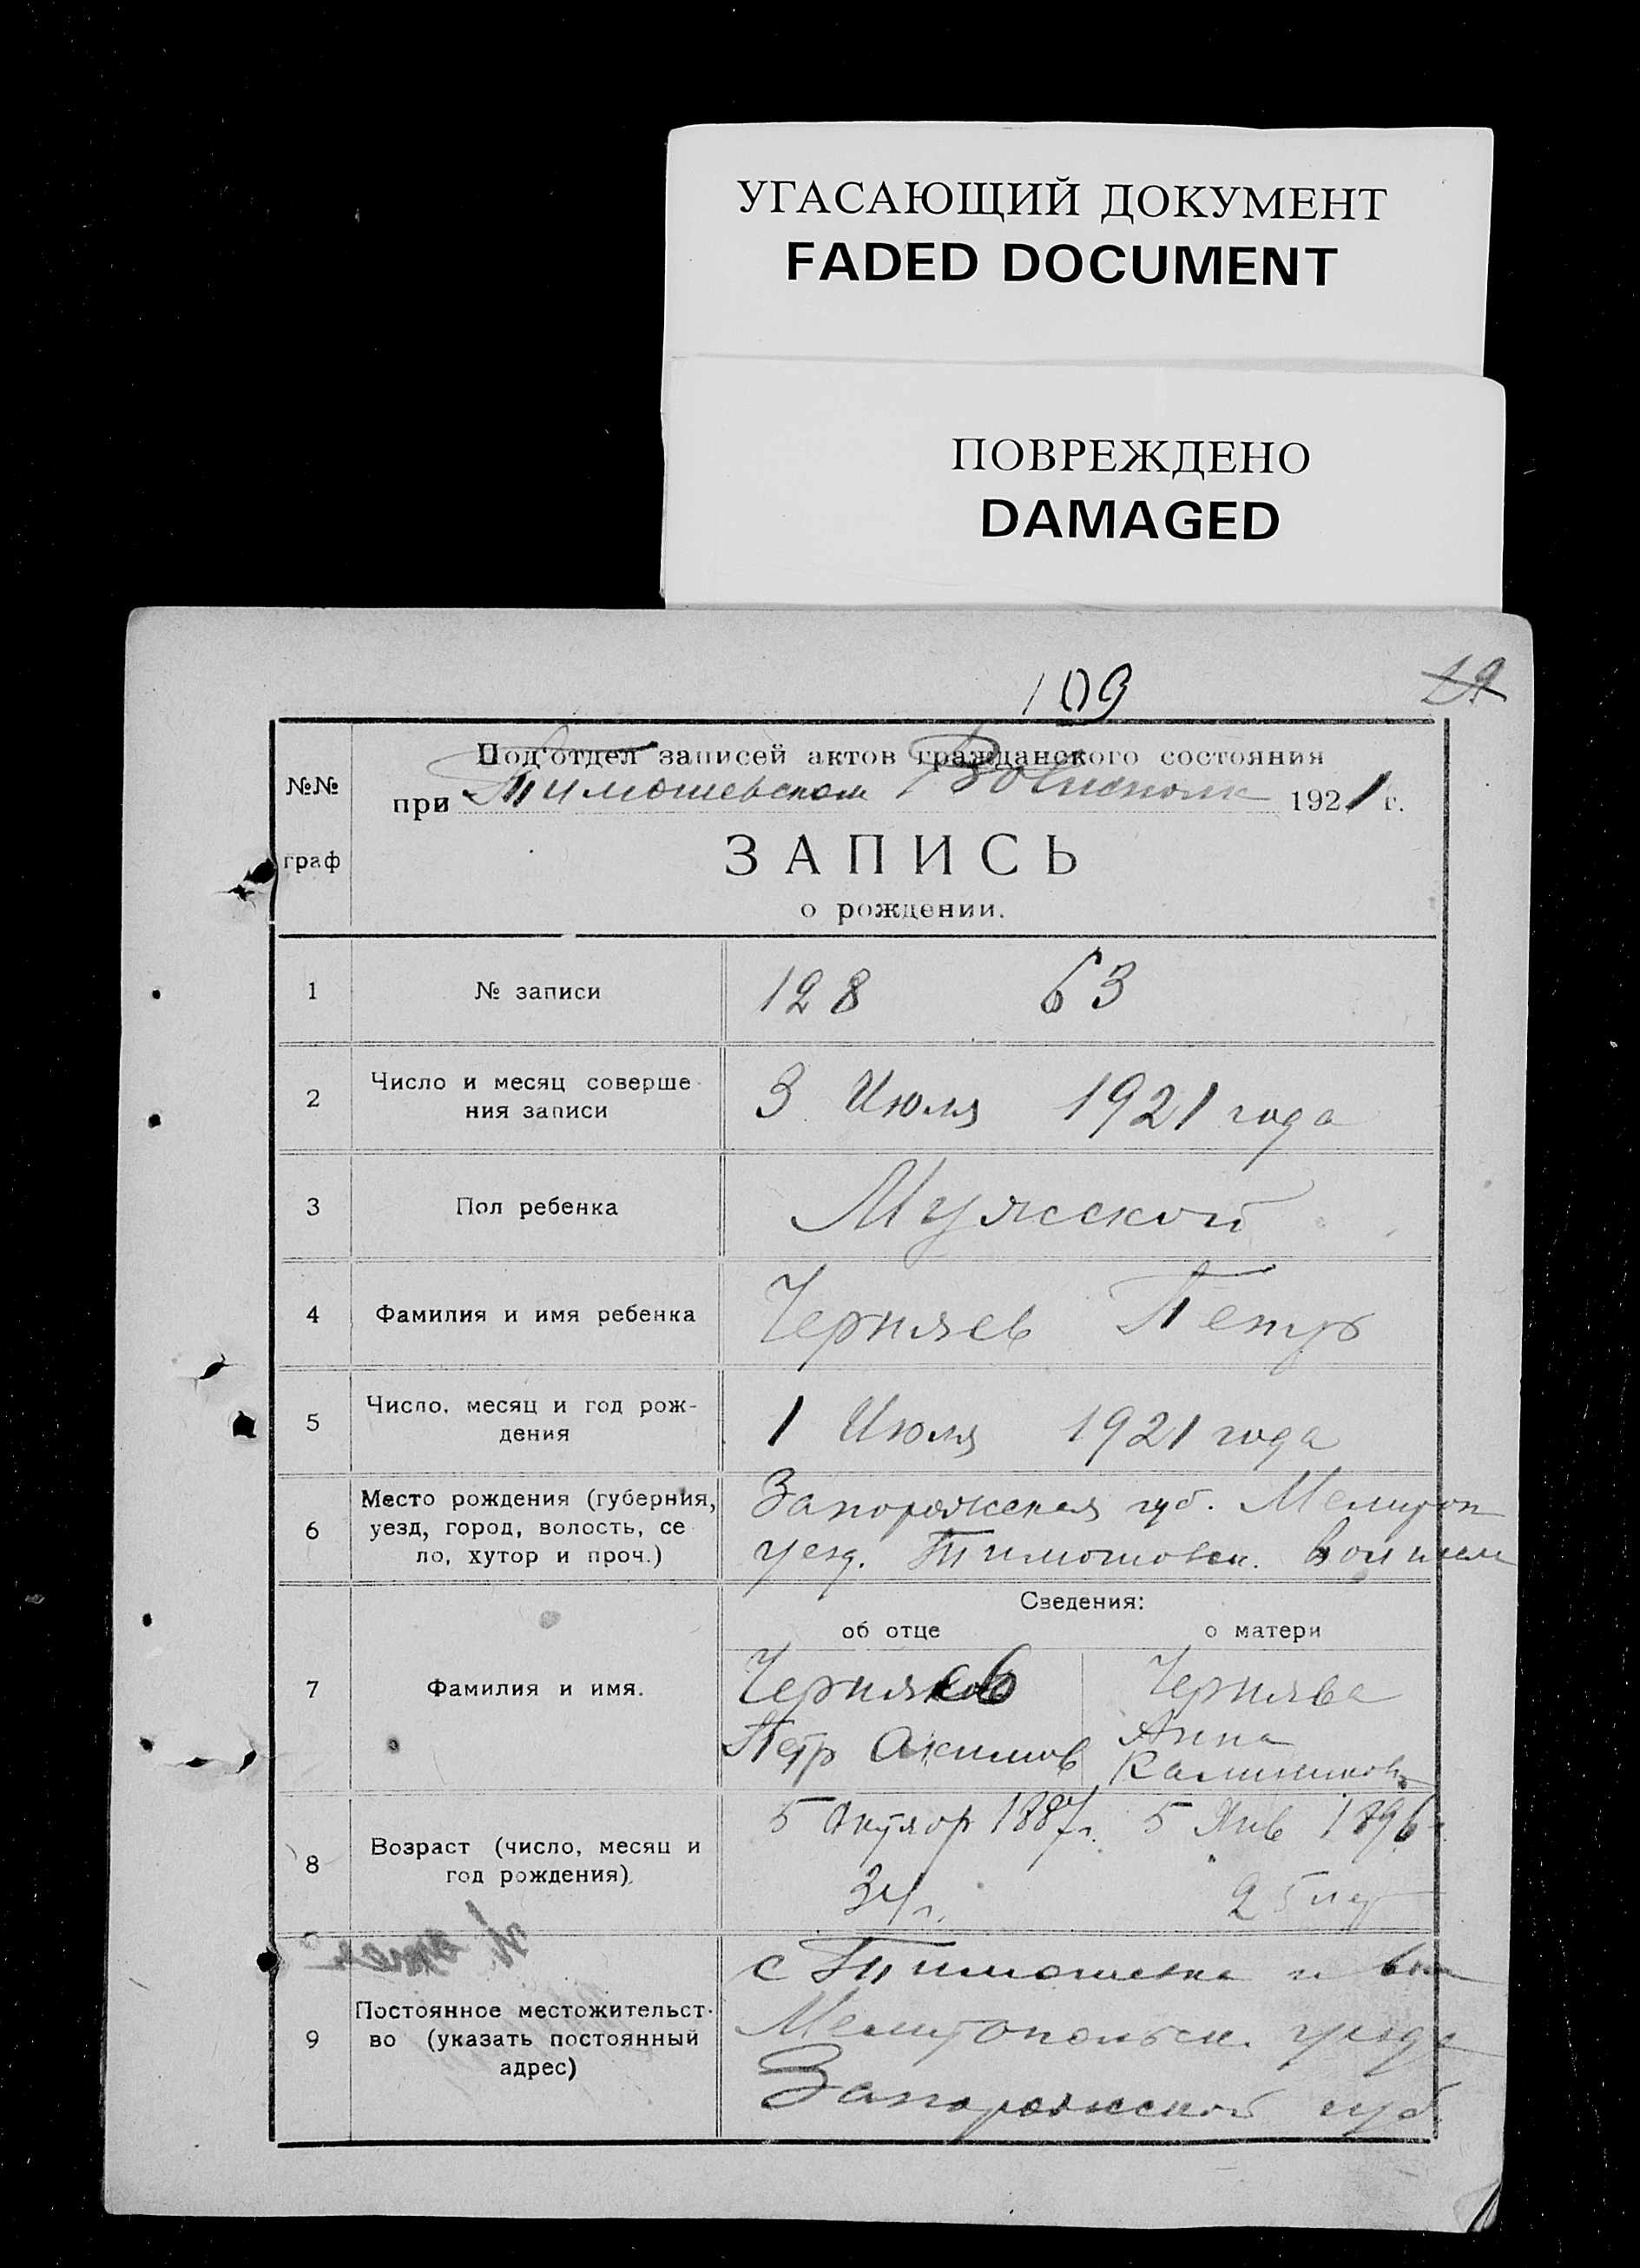 УГАСАЮЩИЙ ДОКУМЕНТ
FADED DOCUMENT
ПОВРЕЖДЕНО
DAMAGED
109
19
№№
граф
Под'отдел записей актов гражданского состояния
при Тимошевском 1921 г.
ЗАПИСЬ
о рождении.
1
№ записи
128 63
2
Число и месяц соверше
ния записи
3 Июля 1921 года
3
Пол ребенка
Мужской
4
Фамилия и имя ребенка
Черняев Петр
5
Число, месяц и год рож-
дения
1 Июля 1921 года
6
Место рождения (губерния,
уезд, город, волость, се
ло, хутор и проч.)
Запорожская губ. Мелитоп
уезд. Тимошовск.
Сведения:
об отце
о матери
7
Фамилия и имя.
Черняев
Петр Акимов
Чернява
Анна
8
Возраст (число, месяц и
год рождения)
5 1887г.
34 г.
5 Янв 1896
25 лет
9
Постоянное местожительст-
во (указать постоянный
адрес)
с Тимошевка
Мелитопольск. уезда
Запорожской губ